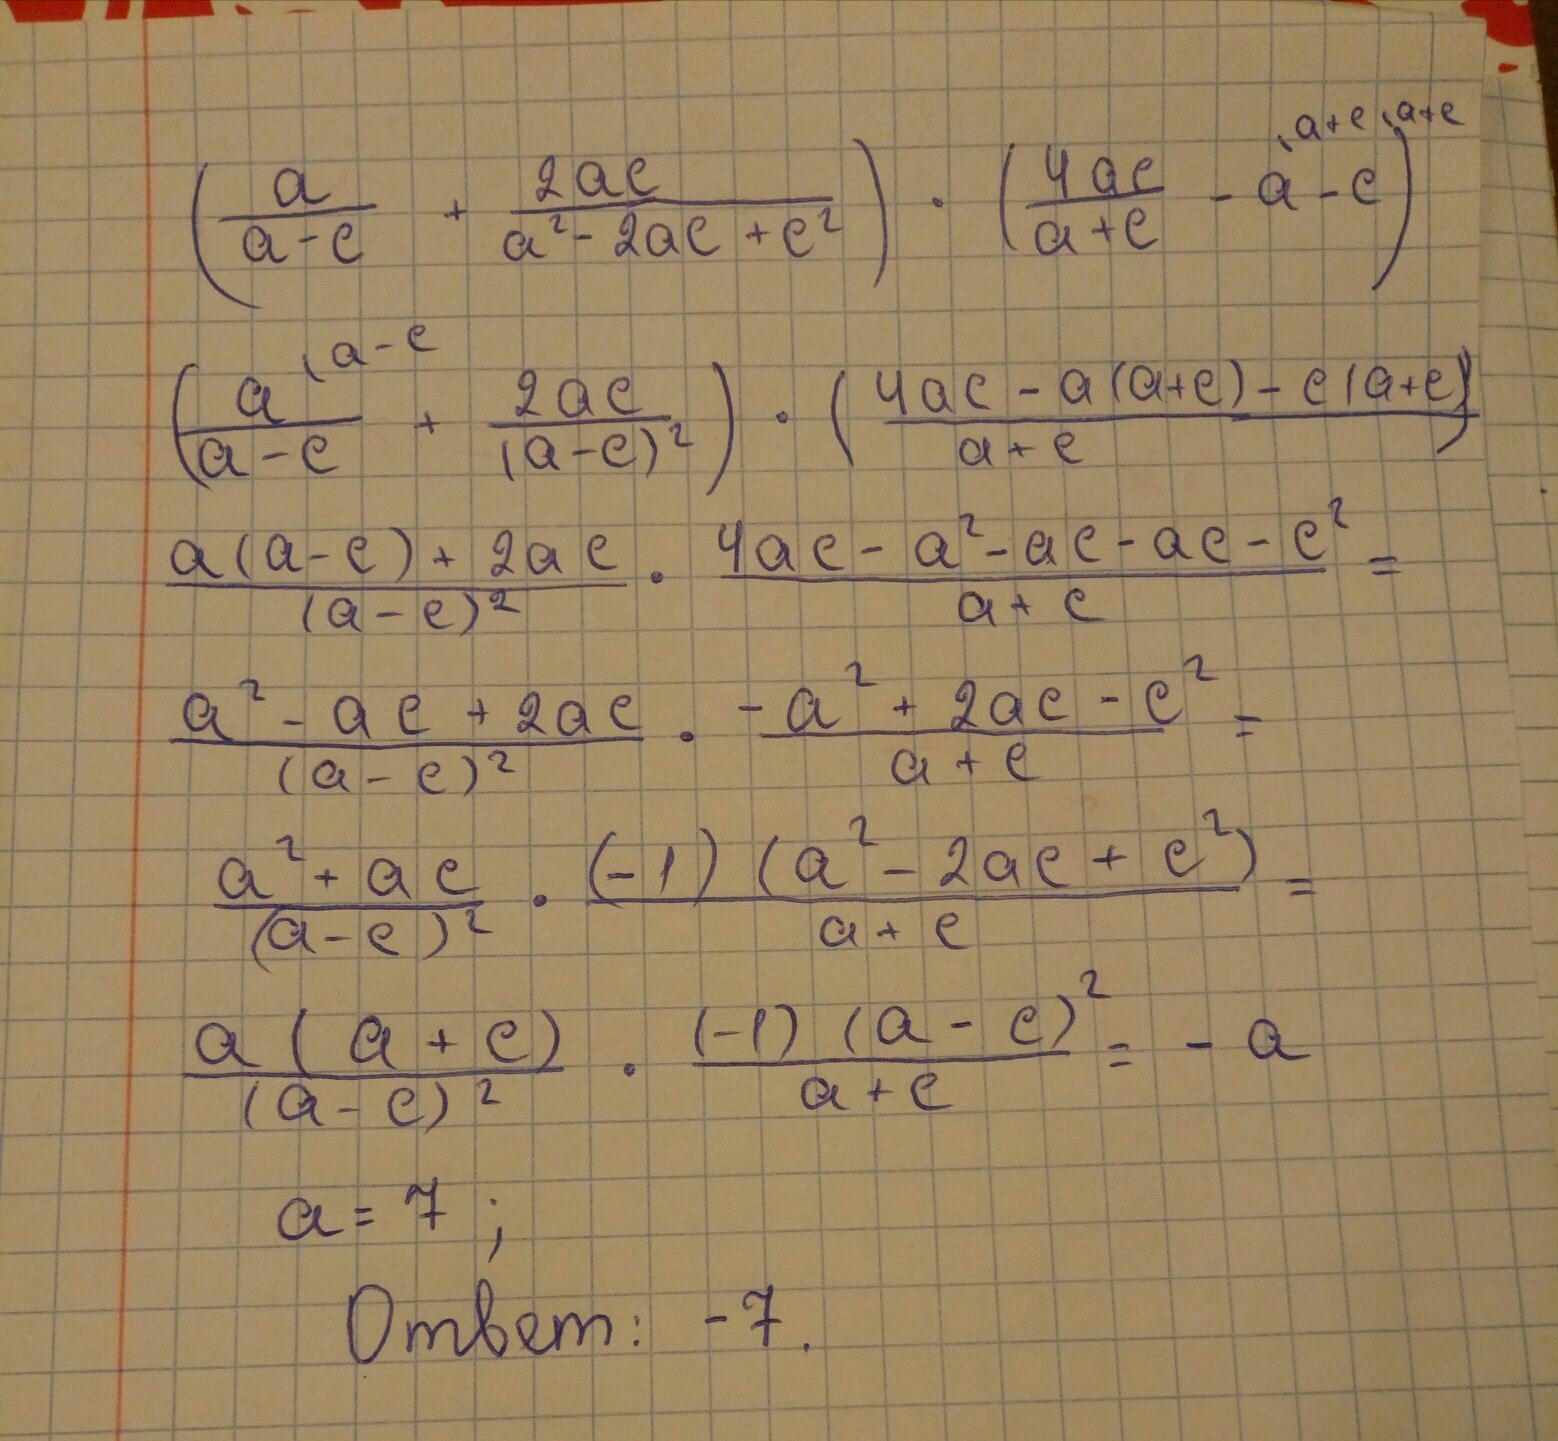 (a/(a-c) + 2ac/(a²-2ac+c²)) · (4ac/(a+c) - a\a+c - c\a+c)
(a/(a-c)\a-c + 2ac/(a-c)²) · ((4ac - a(a+c) - c(a+c))/(a+c))
(a(a-c)+2ac)/(a-c)² · (4ac - a² - ac - ac - c²)/(a+c) =
(a² - ac + 2ac)/(a-c)² · (-a² + 2ac - c²)/(a+c) =
(a² + ac)/(a-c)² · (-1)(a² - 2ac + c²)/(a+c) =
a(a+c)/(a-c)² · (-1)(a-c)²/(a+c) = - a
a = 7 ;
Ответ: -7.